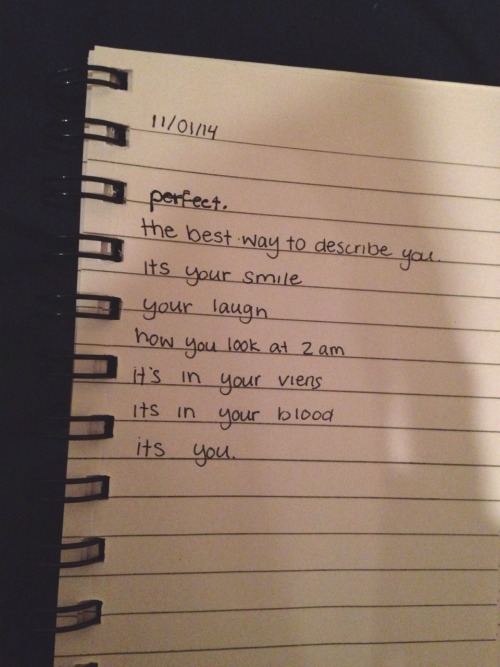 11/01/14
perfect.
the best way to describe you.
Its your smile
your laugh
how you look at 2 am
it's in your viens
its in your blood
its you.